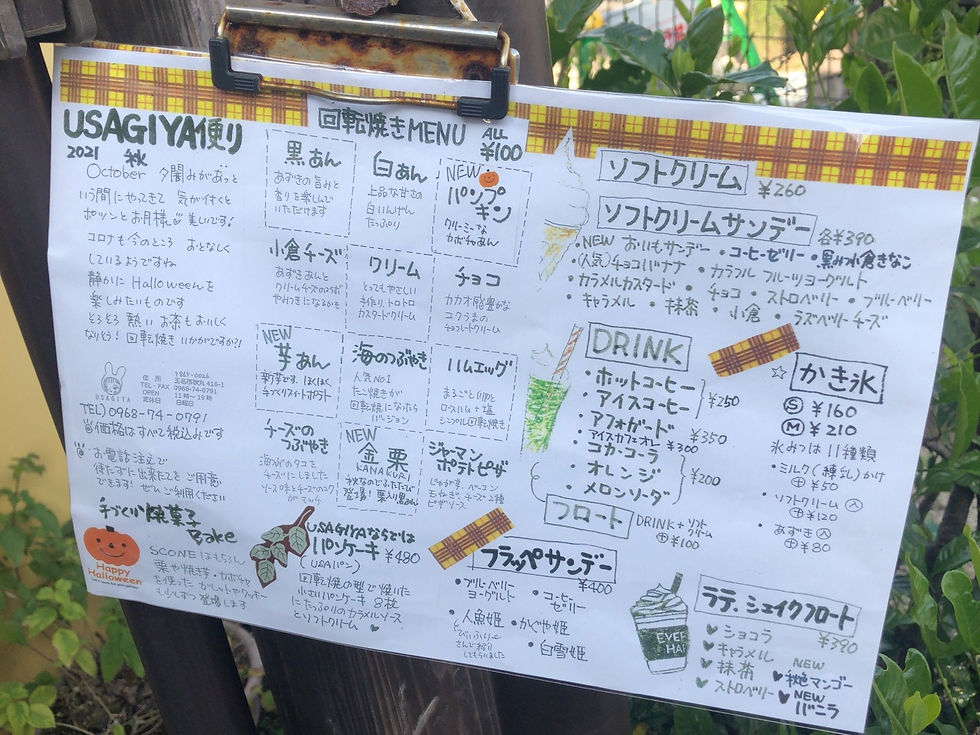 USAGIYA便り
2021 秋
October 夕闇みがあっと
いう間にやってきて 気が付くと
ポツンとお月様 美しいです!
コロナも今のところ おとなしく
しているようですね
静かに Halloweenを
楽しみたいものです
そろそろ 熱い お茶もおいしく
なりそう! 回転焼き いかがですか?!
USAGIYA
住所
TEL・FAX 0968-74-0791
OPEN 11時~19時
定休日 日曜日
TEL) 0968-74-0791
価格はすべて税込みです
お電話注文で
待たずに出来立を ご用意
できます! ぜひ ご利用ください
手づくり焼菓子
Bake
Happy
Halloween
SCONEはもちろん
栗や焼き芋・カボチャ
を使った かしいトやクッキー
も少しずつ登場します
回転焼きMENU ALL ¥100
黒あん
あずきの旨みと
香りを楽しんで
いただけます
白あん
上品な甘さの
白いんげん
たっぷり
NEW
パンプキン
クリーミーな
カボチャあん
小倉チーズ
あずきあんと
クリームチーズのコラボ
やわらかになるかも
クリーム
とってもやさしい
手作り、トロトロ
カスタードクリーム
チョコ
カカオ感豊かな
コクうまの
チョコレートクリーム
NEW
芋あん
新芋です。ほくほく
手づくりスイートポテト
海のつぶやき
人気NO1
たこ焼きが
回転焼になったら
バージョン
ハムエッグ
まるごと1ヶ卵と
ロースハム+塩
シンプル回転焼き
チーズの
つぶやき
海がのタコを
チーズにしました
NEW
金栗
KANAKURI
秋なのでふたたび
登場! 栗入り黒あん
ジャーマン
ポテトピザ
じゃが芋、ベーコン
玉ねぎ、チーズ2種
ピザソース
USAGIYAならでは
パンケーキ ¥480
(USAパン)
回転焼の型で焼いた
小さいパンケーキ8枚
にたっぷりのカラメルソース
とソフトクリーム
ソフトクリーム ¥260
ソフトクリームサンデー 各¥390
・NEW おいもサンデー ・コーヒーゼリー ・黒みつ小倉きなこ
・(人気)チョコバナナ ・カラフル フルーツヨーグルト
・カラメルカスタード ・チョコ ・ストロベリー ・ブルーベリー
・キャラメル ・抹茶 ・小倉 ・ラズベリーチーズ
DRINK
・ホットコーヒー
・アイスコーヒー
¥250
・アフォガード ¥350
・アイスカフェオレ ¥300
・コカ・コーラ
・オレンジ
・メロンソーダ
¥200
フロート DRINK+ソフトクリーム
⊕¥100
☆かき氷
Ⓢ ¥160
Ⓜ ¥210
氷みつは11種類
・ミルク(練乳)かけ
⊕¥50
・ソフトクリーム入
⊕¥120
・あずき入
⊕¥80
フラッペサンデー
¥400
・ブルーベリーヨーグルト
・コーヒーゼリー
・人魚姫
・かぐや姫
・白雪姫
ラテ、シェイクフロート
¥390
ショコラ
キャラメル
抹茶
ストロベリー
NEW
マンゴー
NEW
バニラ